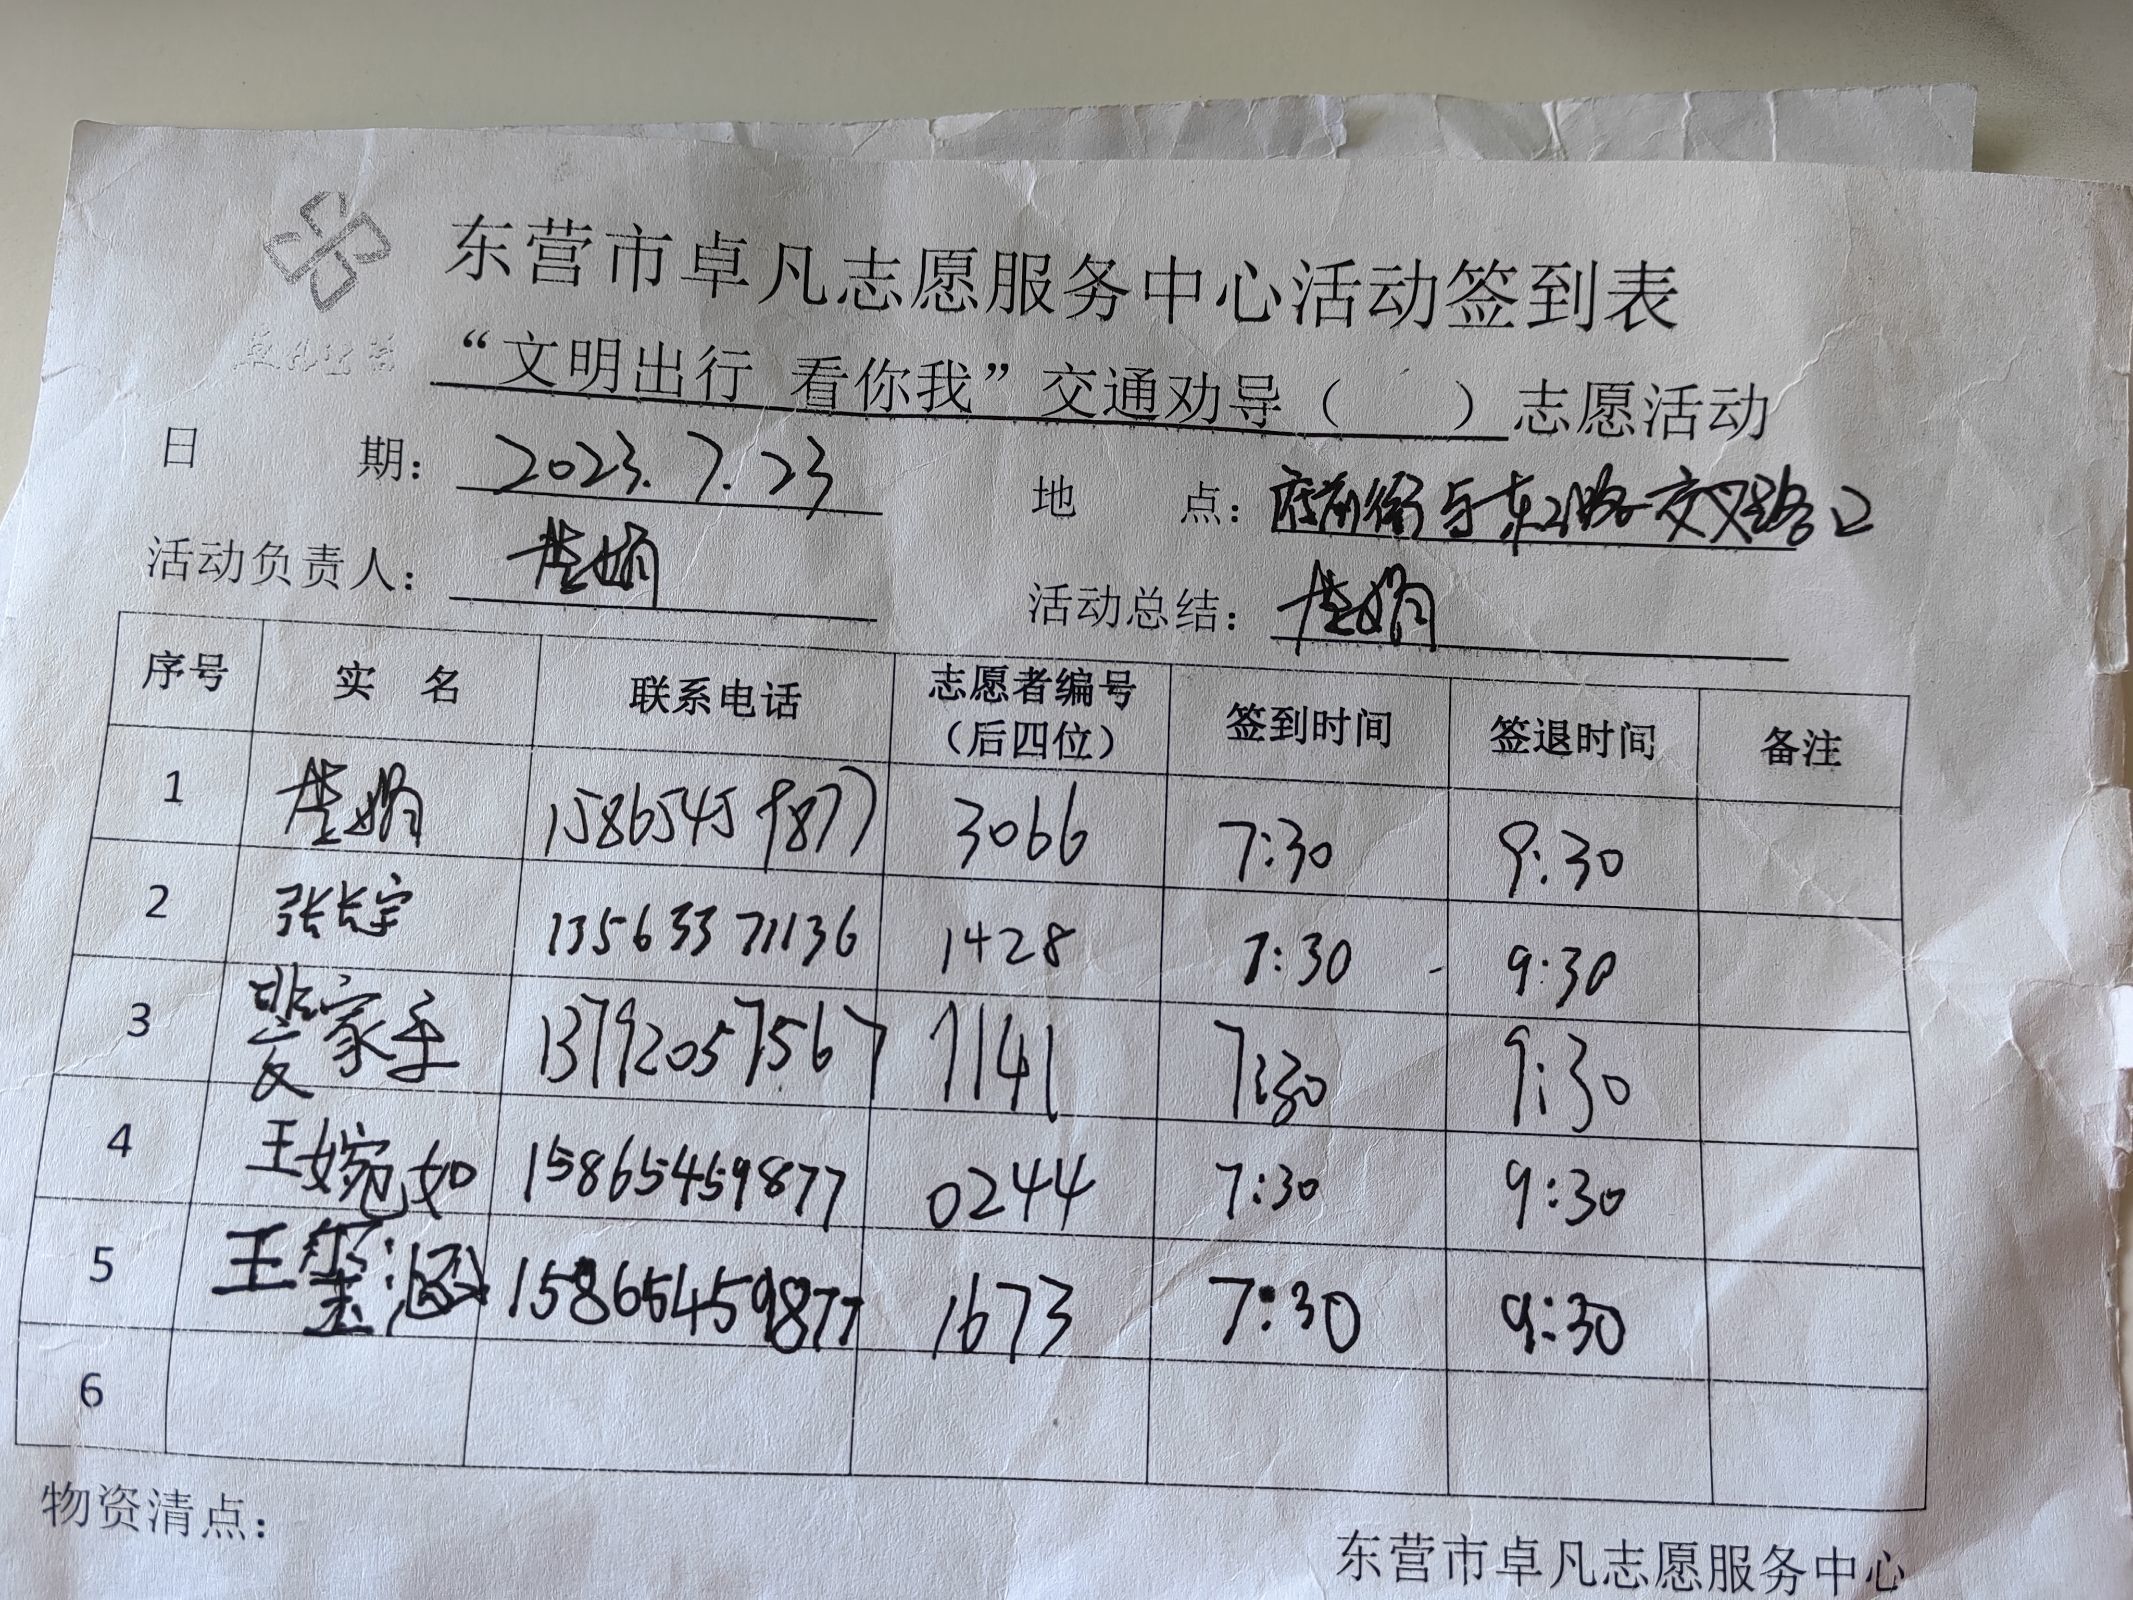 东营市卓凡志愿服务中心活动签到表
“文明出行 看你我”交通劝导（ ）志愿活动
日 期： 2023.7.23 地 点： 府前街与东二路交叉路口
活动负责人： 楚娟 活动总结： 楚娟
序号 实 名 联系电话 志愿者编号（后四位） 签到时间 签退时间 备注
1 楚娟 15865459877 3066 7:30 9:30
2 张长宇 13563371136 1428 7:30 9:30
3 家 13792057567 7141 7:30 9:30
4 王婉如 15865459877 0244 7:30 9:30
5 王玺涵 15865459877 1673 7:30 9:30
6
物资清点：
东营市卓凡志愿服务中心